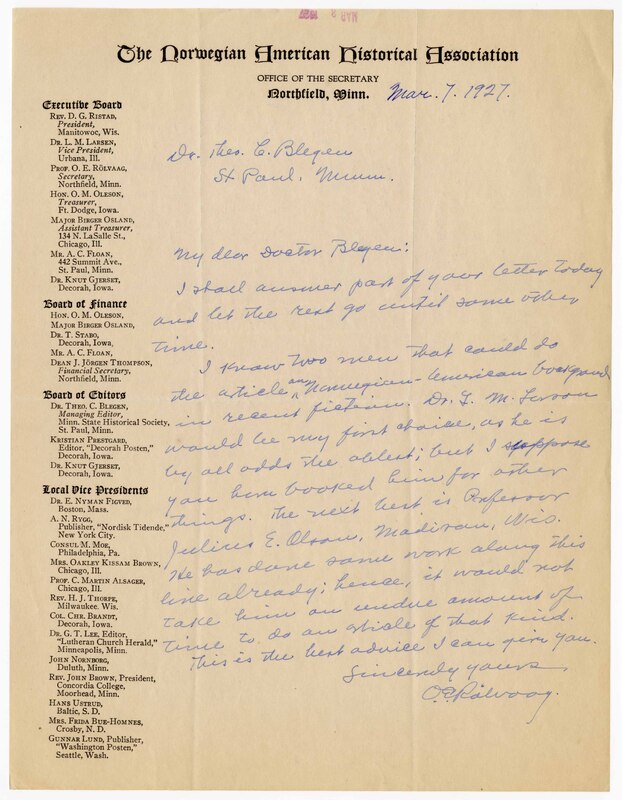 MAR 8 1927
The Norwegian American Historical Association
OFFICE OF THE SECRETARY
Northfield, Minn.
Mar. 7. 1927.
Executive Board
REV. D. G. RISTAD,
President,
Manitowoc, Wis.
DR. L. M. LARSEN,
Vice President,
Urbana, Ill.
PROF. O. E. RÖLVAAG,
Secretary,
Northfield, Minn.
HON. O. M. OLESON,
Treasurer,
Ft. Dodge, Iowa.
MAJOR BIRGER OSLAND,
Assistant Treasurer,
134 N. LaSalle St.,
Chicago, Ill.
MR. A. C. FLOAN,
442 Summit Ave.,
St. Paul, Minn.
DR. KNUT GJERSET,
Decorah, Iowa.
Board of Finance
HON. O. M. OLESON,
MAJOR BIRGER OSLAND,
DR. T. STABO,
Decorah, Iowa.
MR. A. C. FLOAN,
DEAN J. JÖRGEN THOMPSON,
Financial Secretary,
Northfield, Minn.
Board of Editors
DR. THEO. C. BLEGEN,
Managing Editor,
Minn. State Historical Society,
St. Paul, Minn.
KRISTIAN PRESTGARD,
Editor, "Decorah Posten,"
Decorah, Iowa.
DR. KNUT GJERSET,
Decorah, Iowa.
Local Vice Presidents
DR. E. NYMAN FIGVED,
Boston, Mass.
A. N. RYGG,
Publisher, "Nordisk Tidende,"
New York City.
CONSUL M. MOE,
Philadelphia, Pa.
MRS. OAKLEY KISSAM BROWN,
Chicago, Ill.
PROF. C. MARTIN ALSAGER,
Chicago, Ill.
REV. H. J. THORPE,
Milwaukee. Wis.
COL. CHR. BRANDT,
Decorah, Iowa.
DR. G. T. LEE, Editor,
"Lutheran Church Herald,"
Minneapolis, Minn.
JOHN NORBORG,
Duluth, Minn.
REV. JOHN BROWN, President,
Concordia College,
Moorhead, Minn.
HANS USTRUD,
Baltic, S. D.
MRS. FRIDA BUE-HOMNES,
Crosby, N. D.
GUNNAR LUND, Publisher,
"Washington Posten,"
Seattle, Wash.
Dr. Theo. C. Blegen
St Paul. Minn.
My dear Doctor Blegen:
I shall answer part of your letter today
and let the rest go until some other
time.
I know two men that could do
the article on Norwegian-American background
in recent fiction. Dr. L. M. Larson
would be my first choice, as he is
by all odds the ablest; but I suppose
you have booked him for other
things. The next best is Professor
Julius E. Olson, Madison, Wis.
He has done some work along this
line already; hence, it would not
take him an undue amount of
time to do an article of that kind.
This is the best advice I can give you.
Sincerely yours,
O.E. Rölvaag.